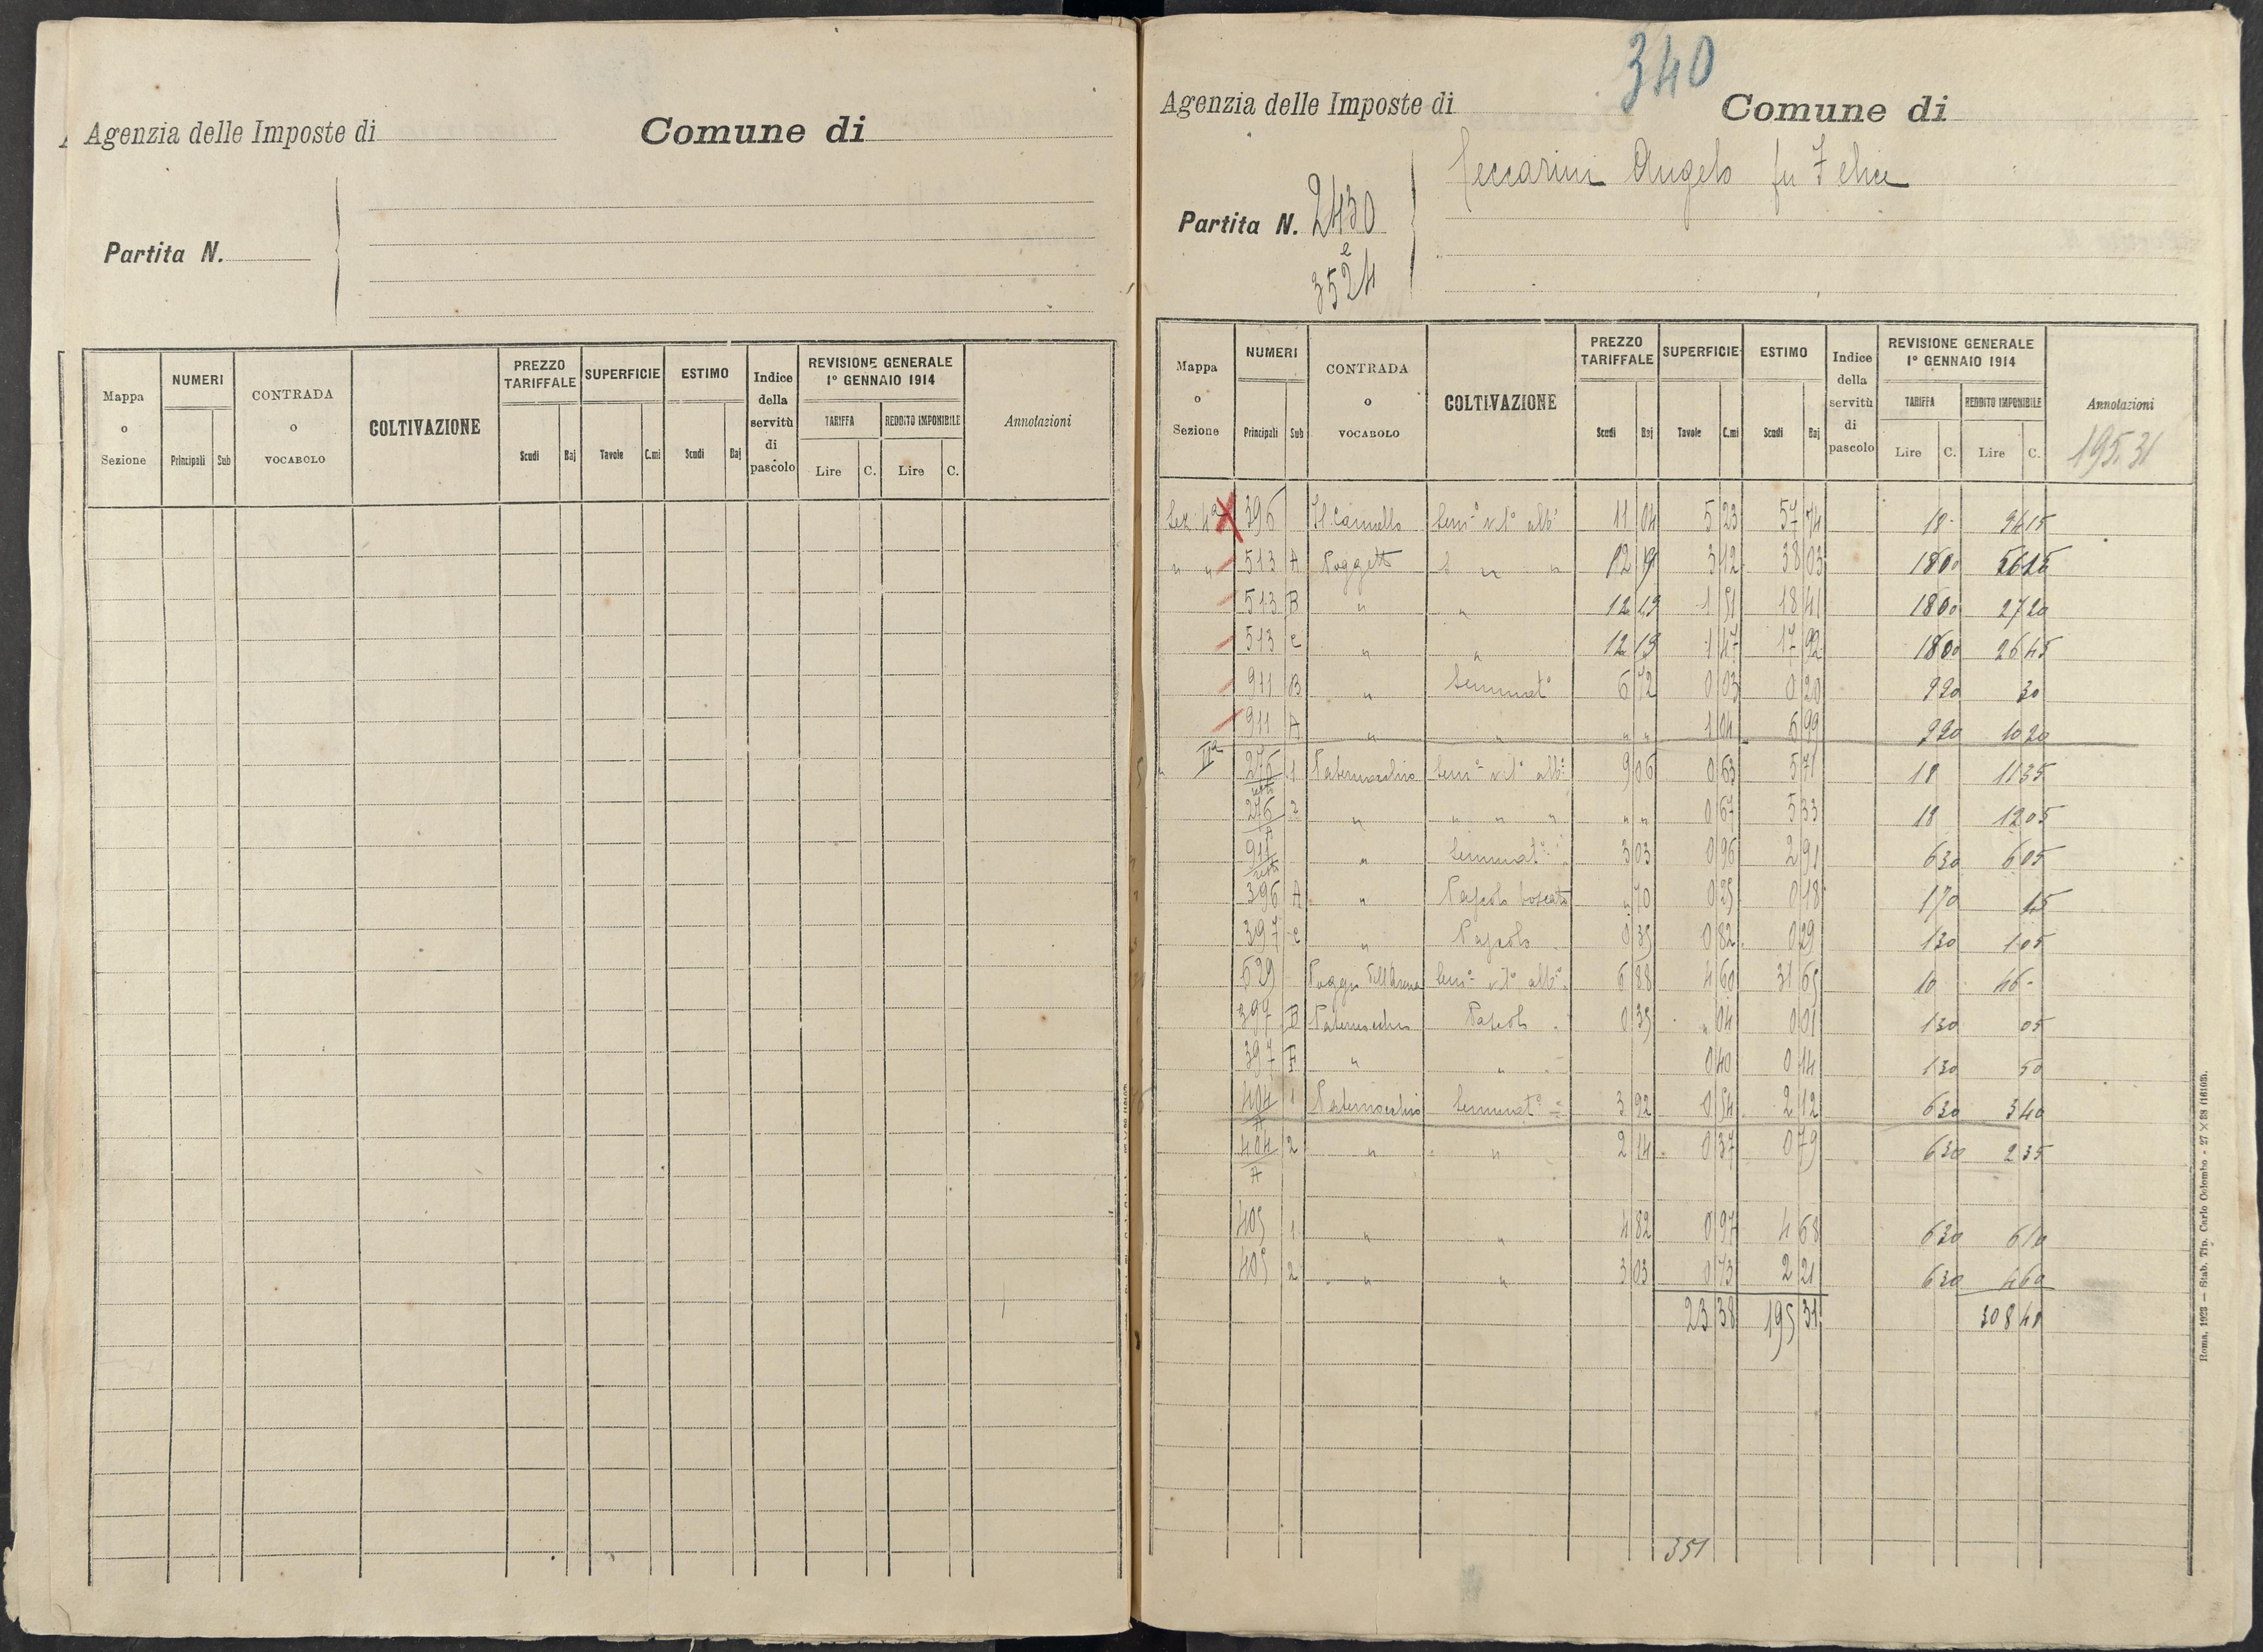 Agenzia delle Imposte di
Comune di
Partita N.
Mappa o Sezione
NUMERI
Principali
Sub
CONTRADA o VOCABOLO
COLTIVAZIONE
PREZZO TARIFFALE
Scudi
Baj
SUPERFICIE
Tavole
C.mi
ESTIMO
Scudi
Baj
Indice della servitù di pascolo
REVISIONE GENERALE 1° GENNAIO 1914
TARIFFA
Lire
C.
REDDITO IMPONIBILE
Lire
C.
Annotazioni
340
Agenzia delle Imposte di
Comune di
Angelo fu Felice
Partita N. 2430
e
3524
Mappa o Sezione
NUMERI
Principali
Sub
CONTRADA o VOCABOLO
COLTIVAZIONE
PREZZO TARIFFALE
Scudi
Baj
SUPERFICIE
Tavole
C.mi
ESTIMO
Scudi
Baj
Indice della servitù di pascolo
REVISIONE GENERALE 1° GENNAIO 1914
TARIFFA
Lire
C.
REDDITO IMPONIBILE
Lire
C.
Annotazioni
195.31
Sez. 4a 396 Sem.o vt.o alb.o 11 04 5 23 57 74 18 - 94 15
" " 513 A Poggetto S " " 12 19 3 12 38 03 18 00 56 15
513 B " " 12 19 1 51 18 41 18 00 27 20
513 C " " 12 19 1 47 17 92 18 00 26 45
911 B " Seminat.o 6 72 0 03 0 20 9 20 30
911 A " " " " 1 04 6 99 9 20 10 20
IIa 276 resto 1 Sem.o vt.o alb.o 9 06 0 63 5 71 18 11 35
276 A 2 " " " " " " 0 67 5 33 18 12 05
911 resto " Seminat.o 3 03 0 96 2 91 6 30 6 05
396 A " Pascolo boscato " 70 0 25 0 18 1 70 45
397 C " Pascolo 0 35 0 82 0 29 1 30 1 05
629 Sem.o vt.o alb.o 6 88 4 60 31 65 10 46 -
397 B Pascolo 0 35 " 04 0 01 1 30 05
397 " " 0 40 0 14 1 30 50
404 A 1 Seminat.o 3 92 0 54 2 12 6 30 3 40
404 A 2 " " 2 14 0 37 0 79 6 30 2 35
405 1 " " 4 82 0 97 4 68 6 30 6 10
405 2 " " 3 03 0 73 2 21 6 30 4 60
23 38 195 31 308 40
351
Roma, 1923 — Stab. Tip. Carlo Colombo - 27 × 38 (16103).